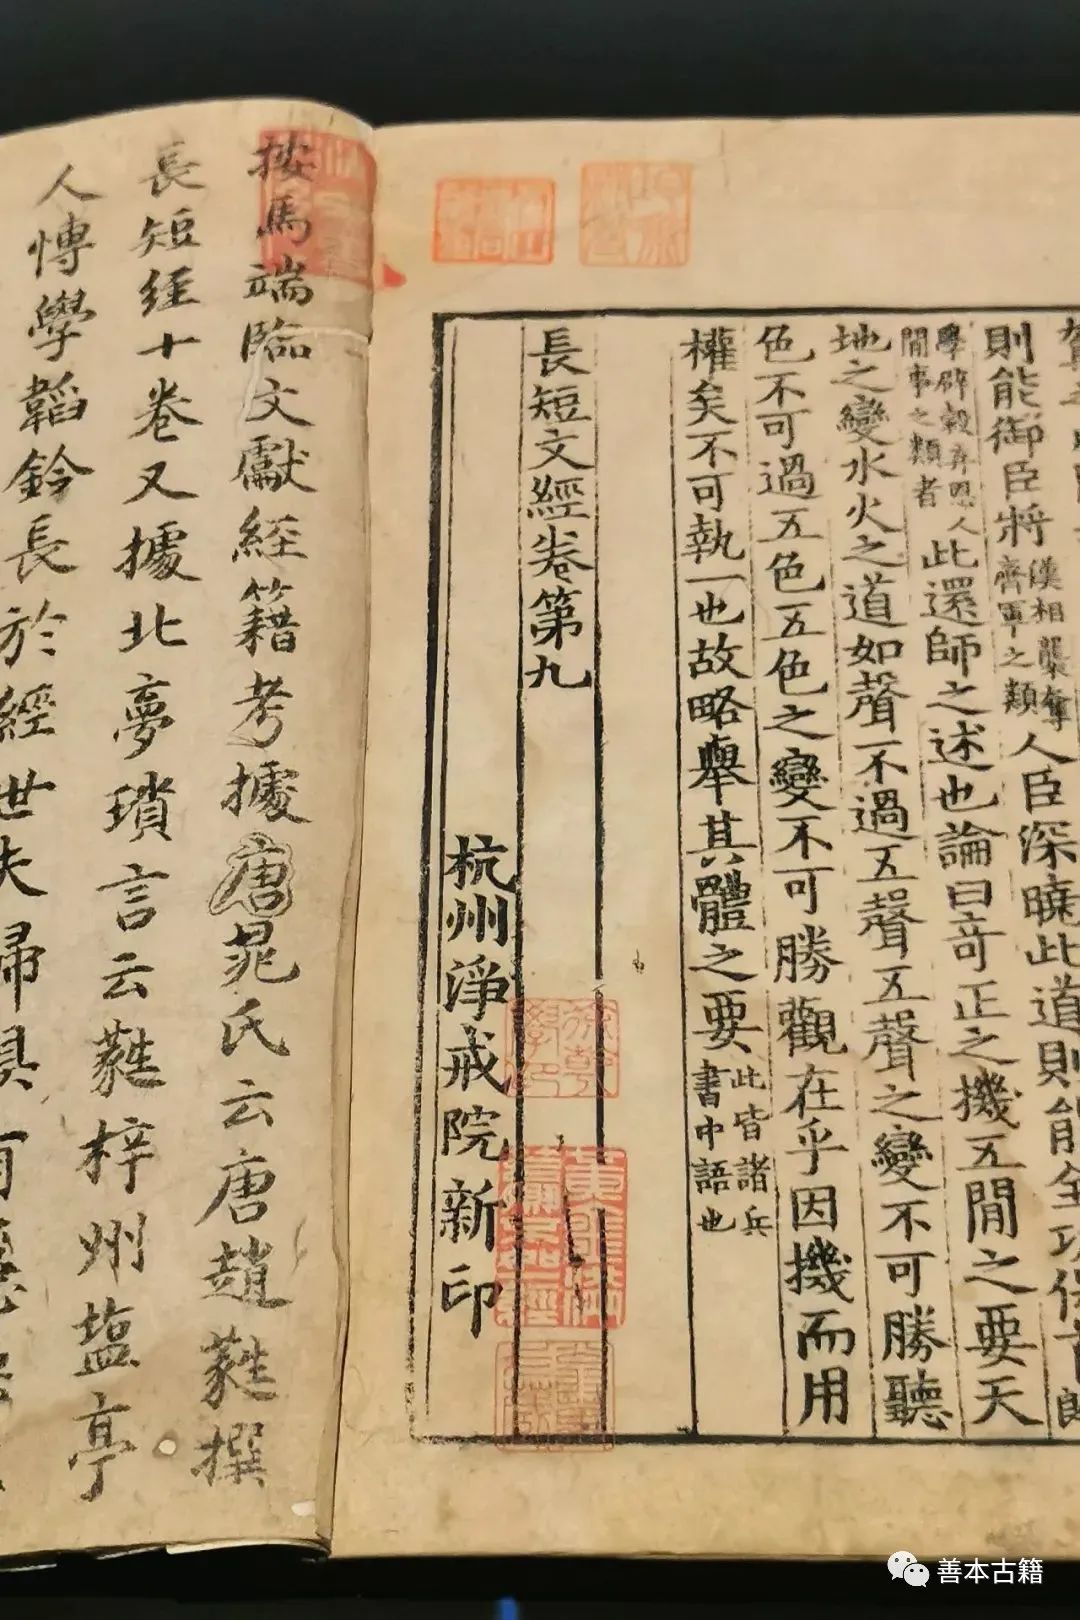 則能御臣將漢相龔奪齊軍之類人臣深曉此道則能全功保首
學辟穀弃恩人間事之類者此還師之述也論曰奇正之機五間之要天
地之變水火之道如聲不過五聲五聲之變不可勝聽
色不可過五色五色之變不可勝觀在乎因機而用
權矣不可執一也故略舉其體之要此皆諸兵書中語也
長短文經卷第九
杭州淨戒院新印
按馬端臨文獻經籍考據唐晁氏云唐趙蕤撰
長短經十卷又據北夢瑣言云蕤梓州塩亭
人博學韜鈐長於經世夫婦俱有
善本古籍